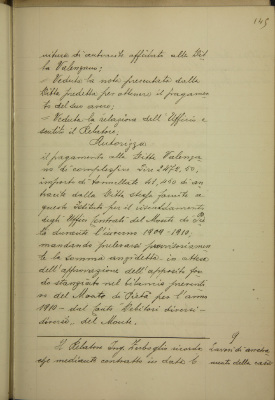 145
nitura di antracite affidata alla Dit
ta Valenzano;
Veduta la nota presentata dalla
Ditta predetta per ottenere il pagamen
to del suo avere;
Veduta la relazione dell'Ufficio e
sentito il Relatore;
Autorizza
il pagamento alla Ditta Valenza
no di complessive Lire 2472.50,
importo di tonnellate di an
tracite dalla Ditta stessa fornite a
questo Istituto per il riscaldamento
degli Uffici Centrali del Monte di Pie
tà durante l'inverno 1909-1910;
mandando prelevarsi provvisoriamen
te la somma anzidetta in attesa
dell'approvazione dell'apposito fon
do stanziato nel bilancio preventi
vo del Monte di Pietà per l'anno
1910 - dal Conto Debitori diversi
del Monte.
9
Il Relatore Ing. ricorda Lavori di
che mediante contratto in data 6 mento della